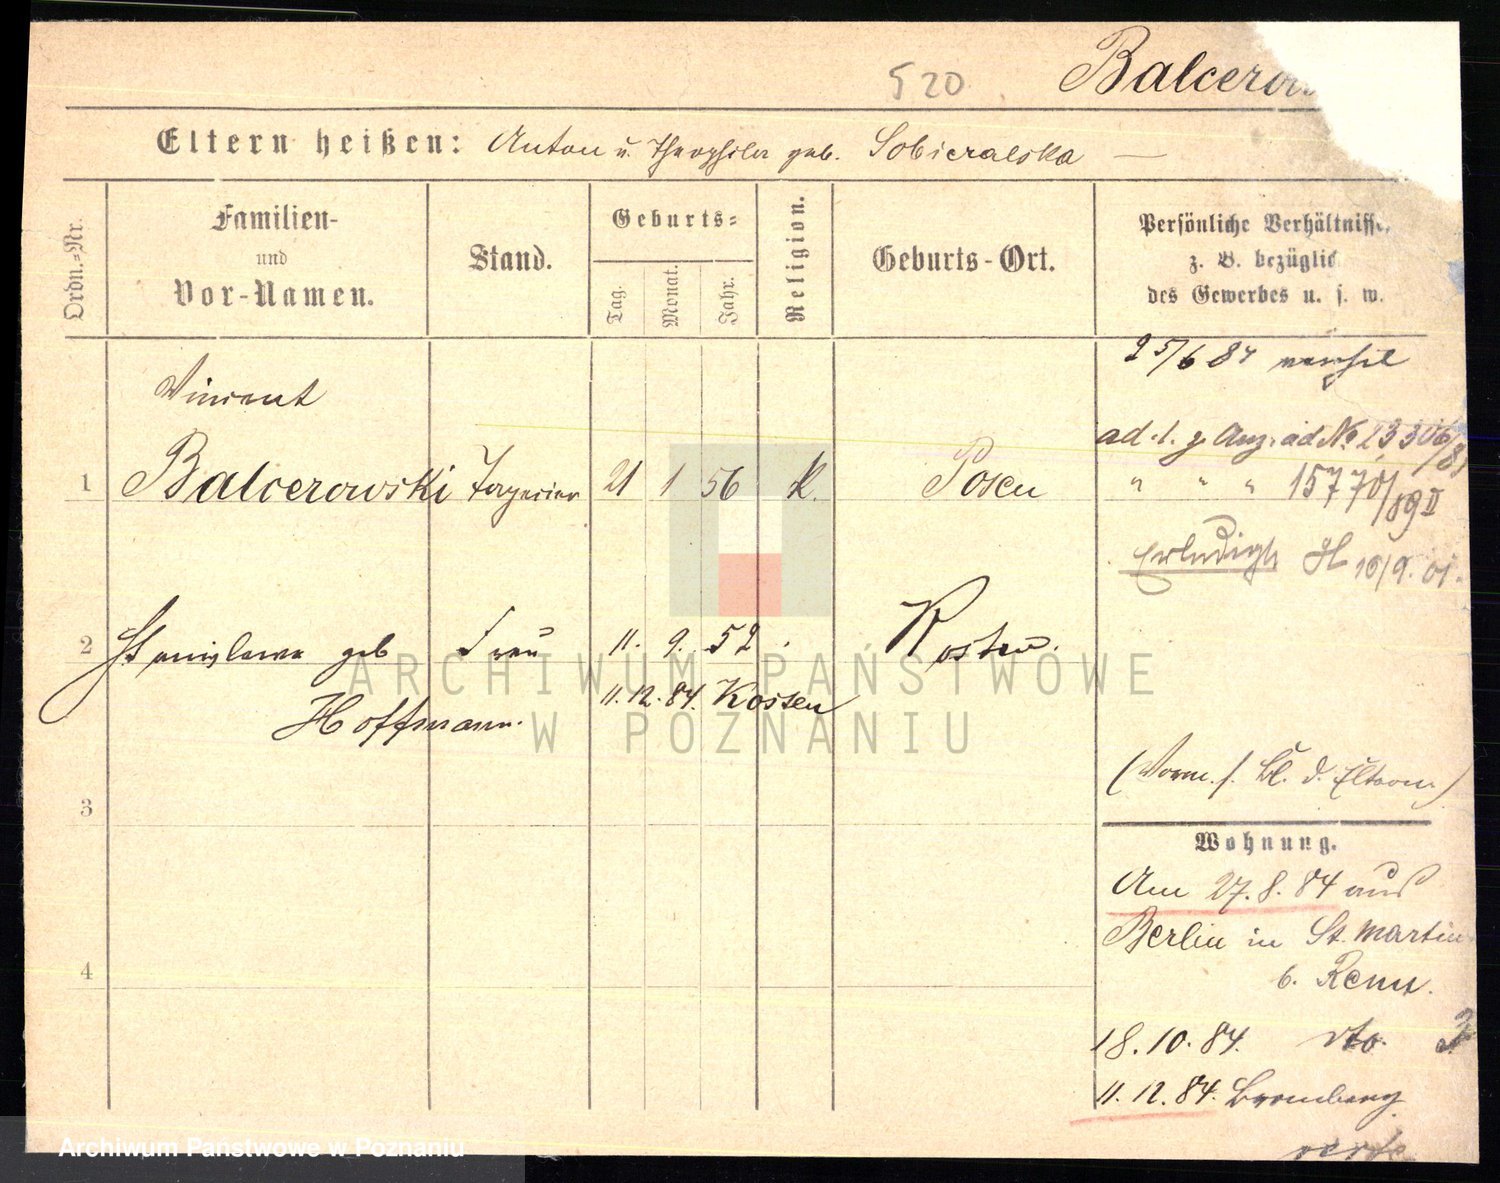 520 Balcerow
Eltern heißen: Anton u. Theophila geb. Sobieralska —
Ordn.-Nr.
Familien- und Vor-Namen.
Stand.
Geburts-
Tag. Monat. Jahr.
Religion.
Geburts-Ort.
Persönliche Verhältnisse,
z. B. bezüglich
des Gewerbes u. s. w.
25/6 84
Vincent
1 Balcerowski Tapezier 21 1 56 K. Posen
ad. 1. g. Anz. ad No 23306/81
" " " 15770/89 II
Erledigt H 10/9. 01.
2 Stanislawa geb Frau 11. 9. 52. Kosten.
Hoffmann. 11. 12. 84. Kosten
3
(Vorm. s. Bl. d. Eltern)
Wohnung.
Am 27. 8. 84 aus
Berlin in St. Martin
4
b. Remu.
18. 10. 84. dto.
11. 12. 84. Bromberg
verte
ARCHIWUM PAŃSTWOWE
W POZNANIU
Archiwum Państwowe w Poznaniu